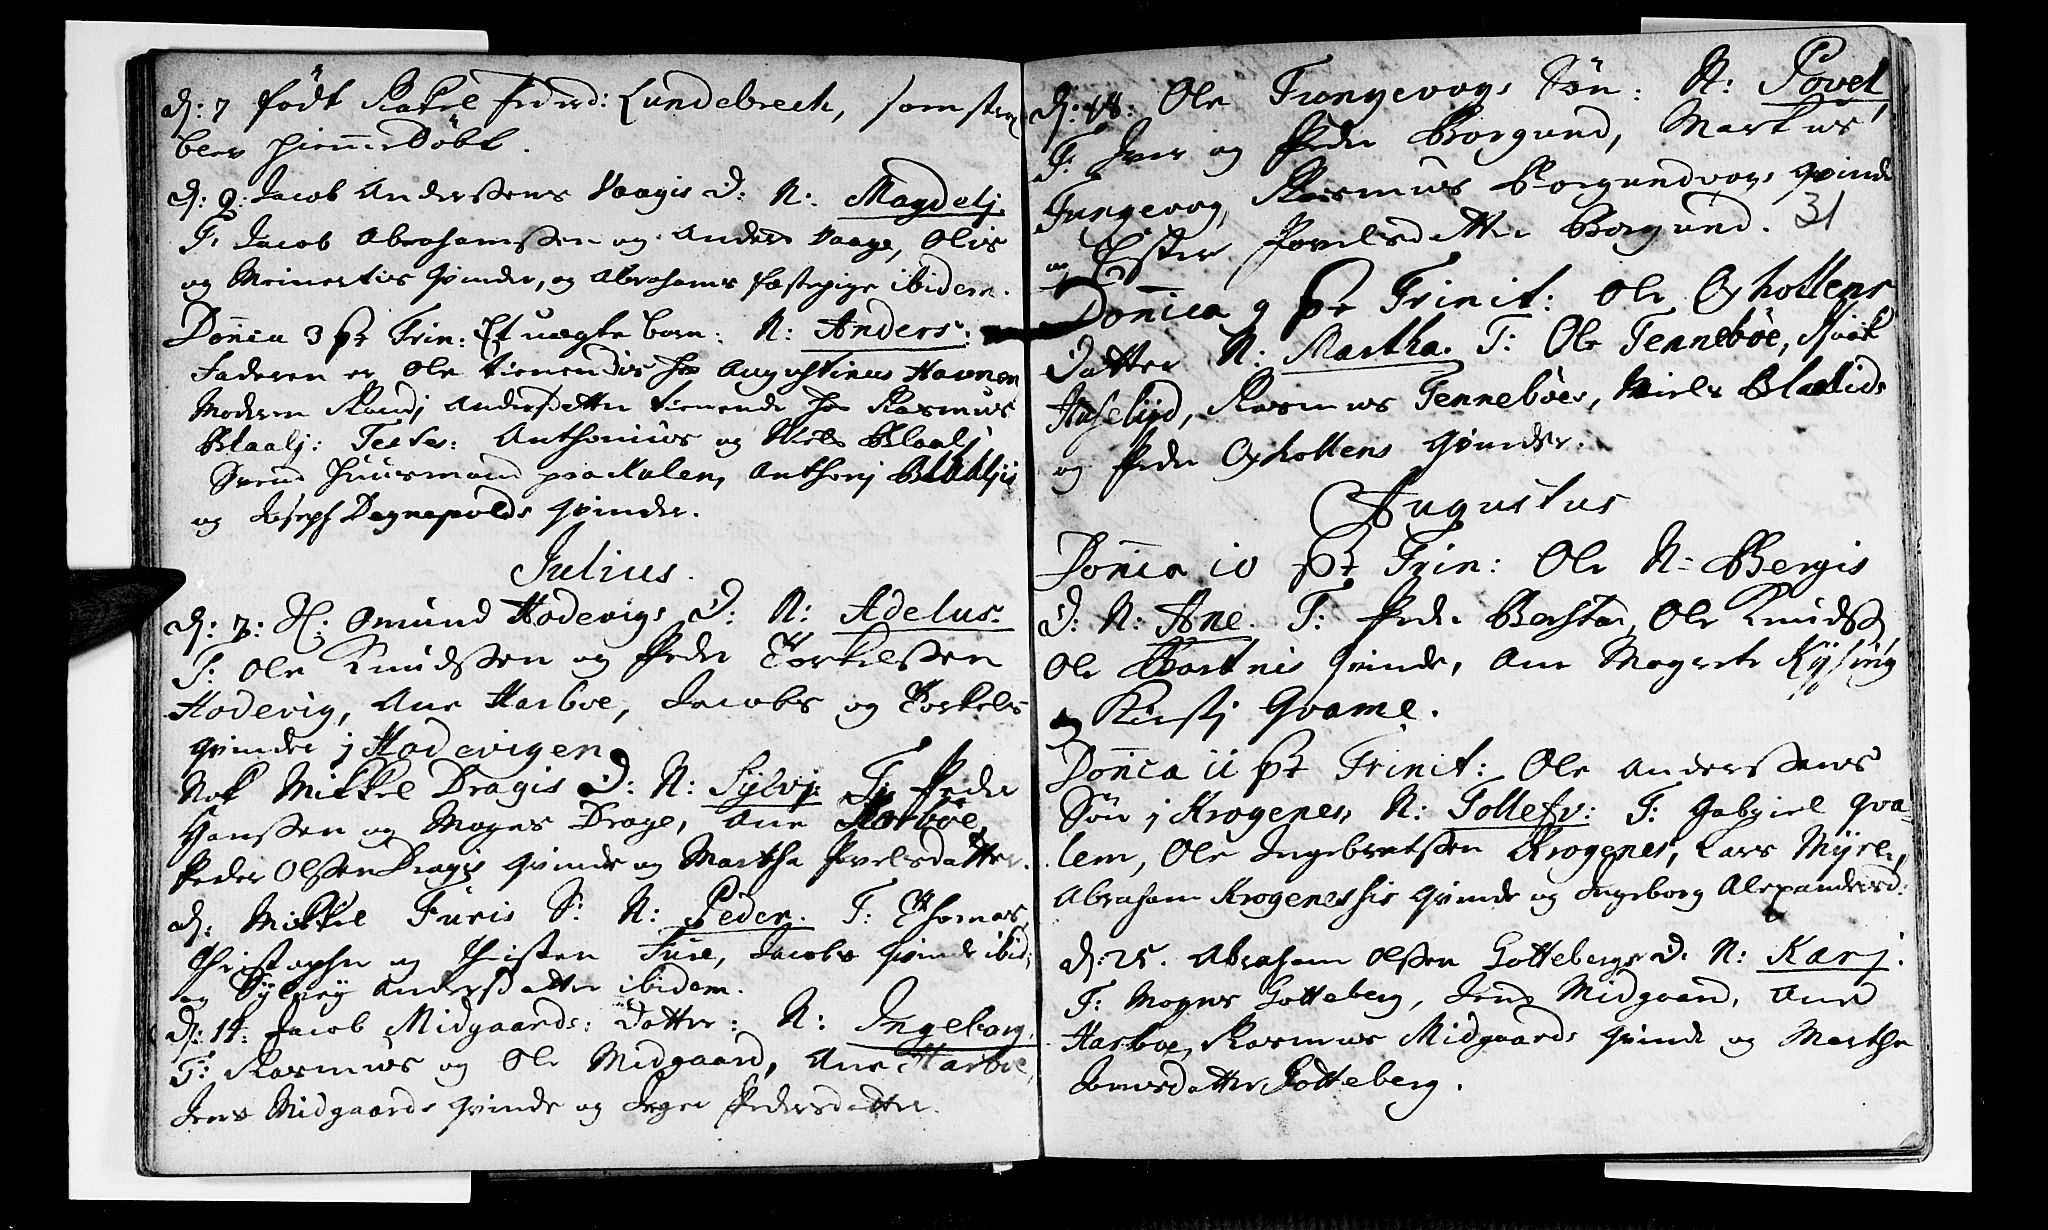 d: 7 född Rakel Feders: Lundebrech, som strax
blev hiemmedöbt.
d: 9: Jacob Anderssens Vaagis D: N: Magdelj.
T: Jacob Abrahamssen og Anders Vaage, Olis
og Meinertis qvinder, og Abrahams fæstepige ibidem.
Domca 3 pt Trin: Et uægte barn: N: Anders:
Faderen er Ole tienendis hos Augustinus Havnen
Moderen Randj Andersdatter tienende hos Rasmus
Blaalj: Testes: Anthonius og Niels Blaalj
Svend Huusmand paa Kalen, Anthonj Blaaljis
og Joseph Degnepolds qvinder.
Julius.
d: 7: H: Omund Hodevigs D: N: Adelus.
T: Ole Knudssen og Peder Torkelssen
Hodevig, Ane Harboe, Jacobs og Torkels
qvinder j Hodevigen
Nok Mikkel Dragis D: N: Sylvj: T: Peder
Hanssen og Mogens Drage, Ane Harboe
Peder Olssen Dragis qvinde og Martha Povelsdatter.
d: Mikkel Furis S: N: Peder. T: Thomas,
Christopher og Christen Fure, Jacobs qvinde ibid:
og Sylvej Andersdatter ibidem.
d: 14: Jacob Midgaards: Datter: N: Ingeborg.
T: Rasmus og Ole Midgaard, Ane Harboe,
Jens Midgaards qvinde og Inger Pedersdatter.
d: 18: Ole Tungevogs Søn: N: Povel,
T: Iver og Peder Borgund, Markus
Tungevog, Rasmus Borgundvogs qvinde
og Ester Povelsdatter Borgund.
31
Domca 9 pt Trinit: Ole Oxhollens
Datter N: Martha. T: Ole Tennebøe,
Haselijd, Rasmus Tennebøes, Niels Blaalids
og Peder Oxhollens qvinder.
Augustus
Domca 10 pt Trin: Ole N: Bergis
D: N: Ane. T: Peder Berstad, Ole Knudss
Ole qvinde, Ane Magrete
og Kirstj Qvame.
Domca 11 pt Trinit: Ole Anderssens
Søn j Krogenes, N: Tollefv: T: Gabriel Qva-
lem, Ole Ingebretssen Krogenes, Lars Myren,
Abraham Krogenessis qvinde og Ingeborg Alexandersd:
d: 25. Abraham Olssen Gottebergs D: N: Karj.
T: Mogens Gotteberg, Jens Midgaard, Ane
Harboe, Rasmus Midgaards qvinde og Martha
Gotteberg.